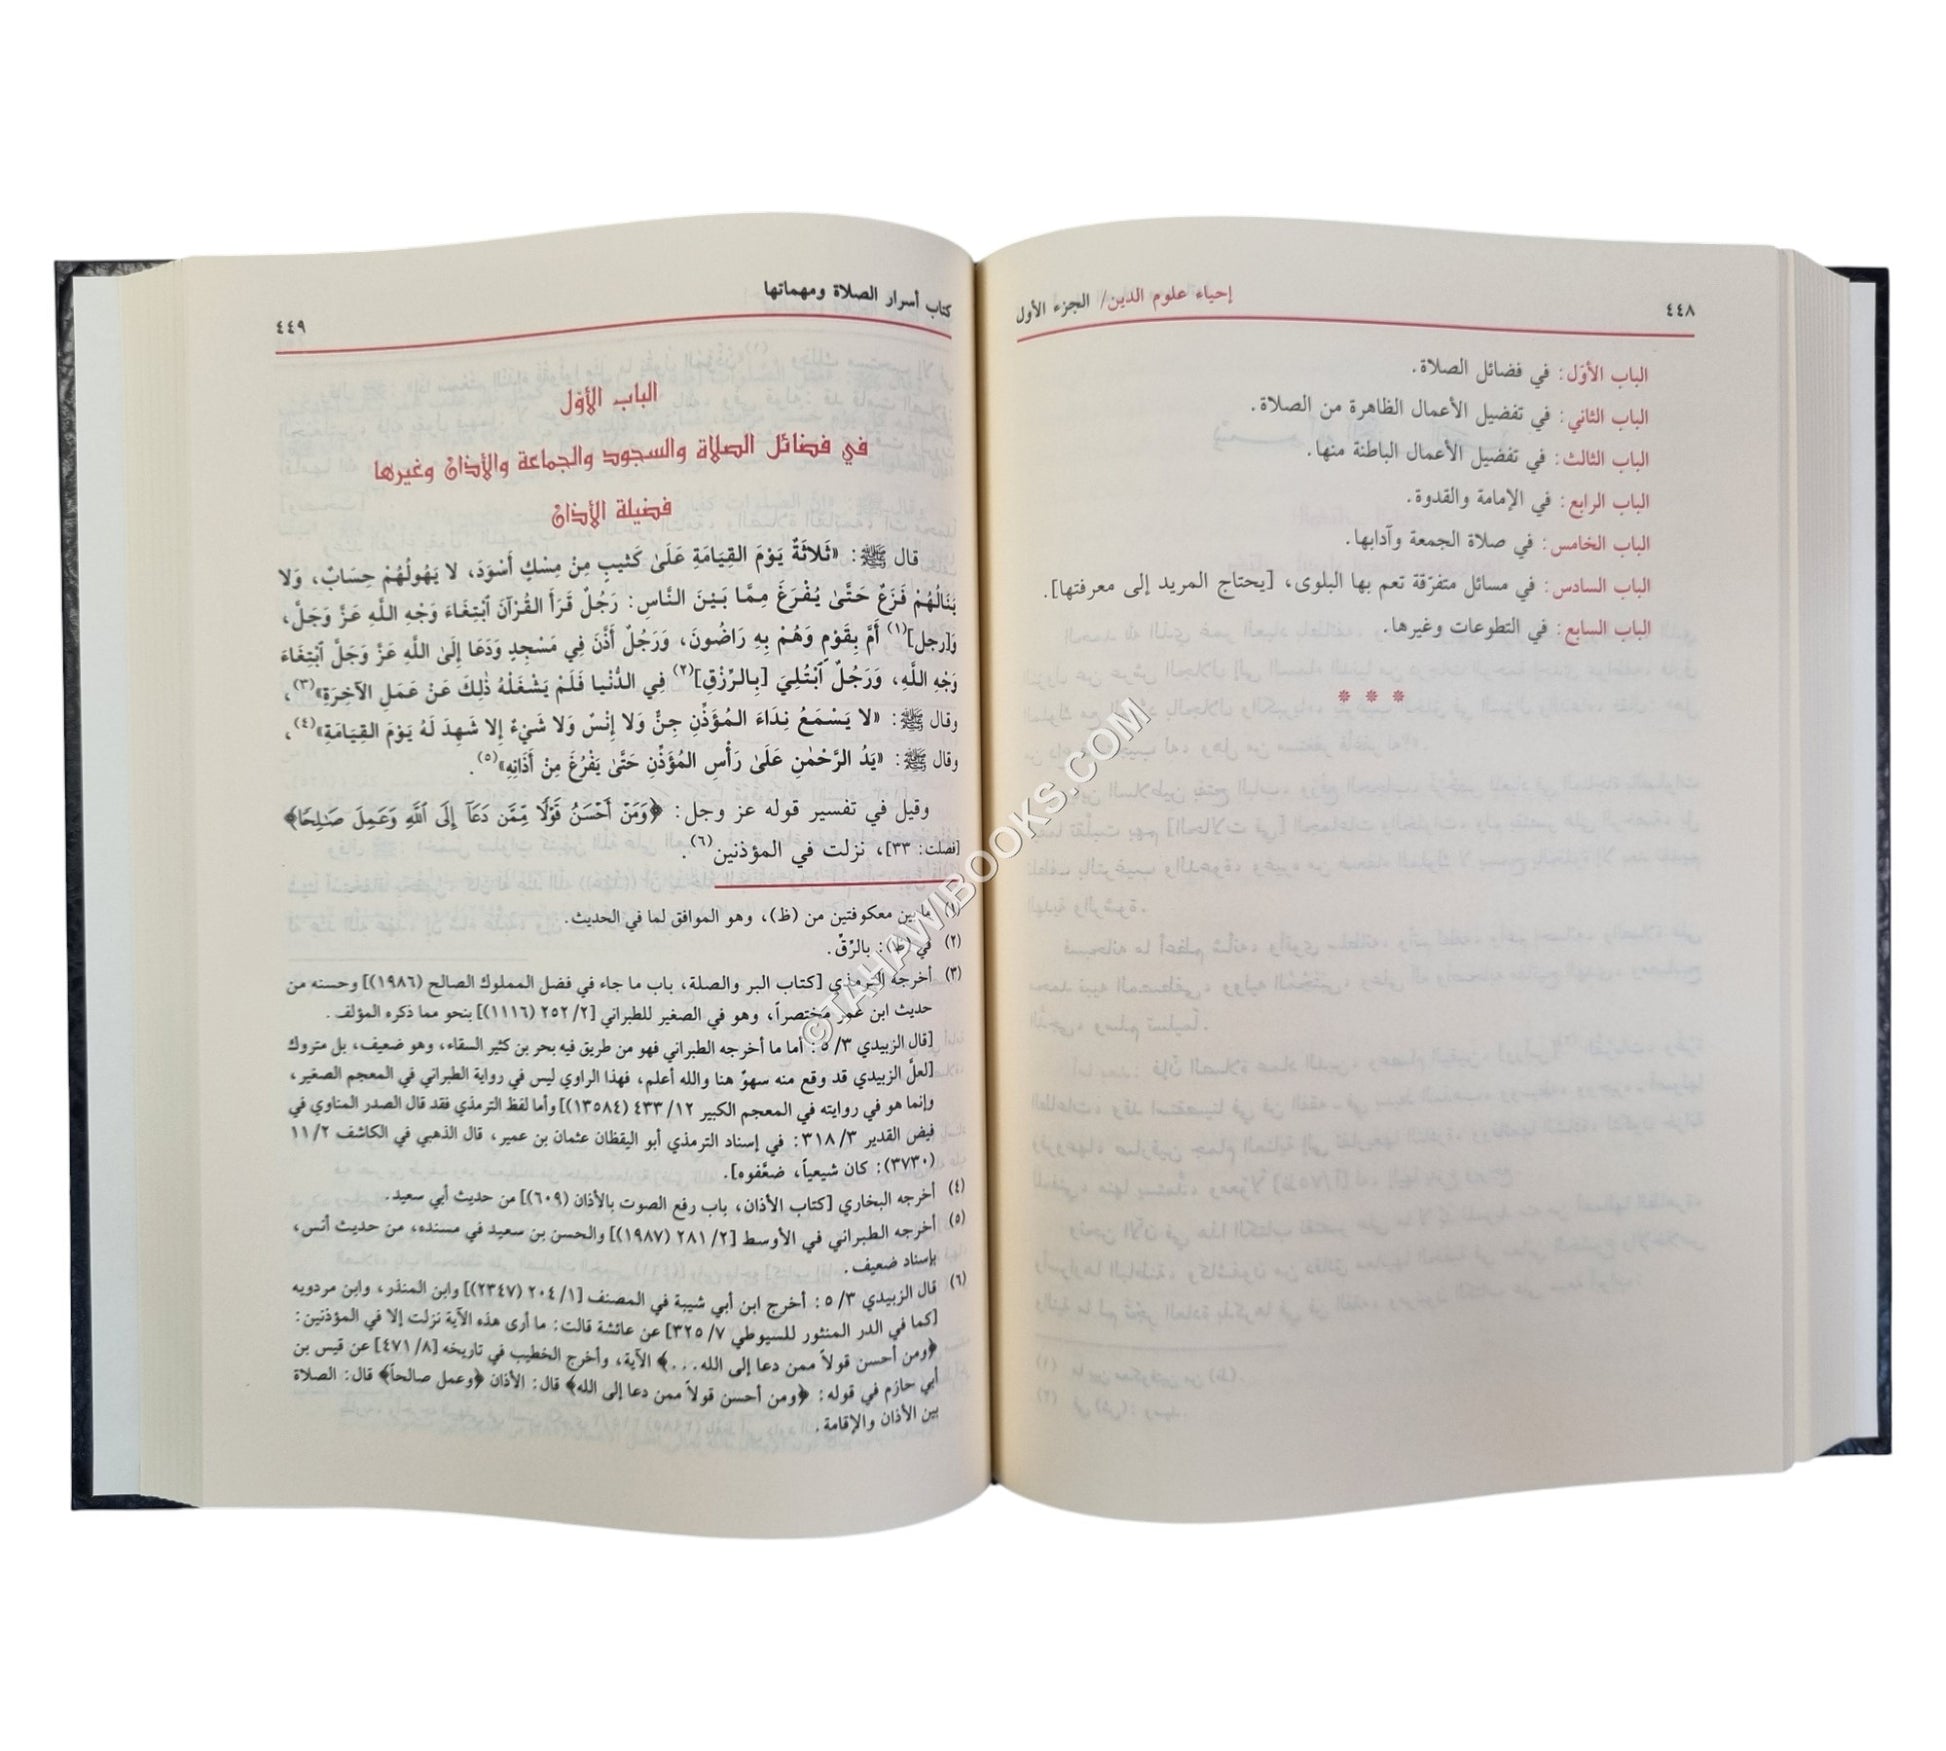 ٤٤٨
إحياء علوم الدين/ الجزء الأول
الباب الأوّل: في فضائل الصلاة.
الباب الثاني: في تفضيل الأعمال الظاهرة من الصلاة.
الباب الثالث: في تفضيل الأعمال الباطنة منها.
الباب الرابع: في الإمامة والقدوة.
الباب الخامس: في صلاة الجمعة وآدابها.
الباب السادس: في مسائل متفرّقة تعم بها البلوى، [يحتاج المريد إلى معرفتها].
الباب السابع: في التطوعات وغيرها.
* * *
كتاب أسرار الصلاة ومهماتها
٤٤٩
الباب الأوّل
في فضائل الصلاة والسجود والجماعة والأذان وغيرها
فضيلة الأذان
قال ﷺ: «ثَلاثَةٌ يَوْمَ القِيَامَةِ عَلَىٰ كَثِيبٍ مِنْ مِسْكٍ أَسْوَدَ، لا يَهُولُهُمْ حِسَابٌ، وَلا
يَنَالُهُمْ فَزَعٌ حَتَّىٰ يُفْرَغَ مِمَّا بَيْنَ النَّاسِ: رَجُلٌ قَرَأَ القُرْآنَ ٱبْتِغَاءَ وَجْهِ اللَّهِ عَزَّ وَجَلَّ،
وَ[رجل](١) أَمَّ بِقَوْمٍ وَهُمْ بِهِ رَاضُونَ، وَرَجُلٌ أَذَّنَ فِي مَسْجِدٍ وَدَعَا إِلَىٰ اللَّهِ عَزَّ وَجَلَّ ٱبْتِغَاءَ
وَجْهِ اللَّهِ، وَرَجُلٌ ٱبْتُلِيَ [بِالرِّزْقِ](٢) فِي الدُّنْيا فَلَمْ يَشْغَلْهُ ذٰلِكَ عَنْ عَمَلِ الآخِرَةِ»(٣)،
وقال ﷺ: «لا يَسْمَعُ نِدَاءَ المُؤَذِّنِ جِنٌّ وَلا إِنْسٌ وَلا شَيْءٌ إِلا شَهِدَ لَهُ يَوْمَ القِيَامَةِ»(٤)،
وقال ﷺ: «يَدُ الرَّحْمٰنِ عَلَىٰ رَأْسِ المُؤَذِّنِ حَتَّىٰ يَفْرُغَ مِنْ أَذَانِهِ»(٥).
وقيل في تفسير قوله عز وجل: ﴿وَمَنْ أَحْسَنُ قَوْلًا مِّمَّن دَعَآ إِلَى ٱللَّهِ وَعَمِلَ صَـٰلِحًا﴾
[فصلت: ٣٣]، نزلت في المؤذنين(٦).
(١) ما بين معكوفتين من (ظ)، وهو الموافق لما في الحديث.
(٢) في (ظ): بالرِّقِّ.
(٣) أخرجه الترمذي [كتاب البر والصلة، باب ما جاء في فضل المملوك الصالح (١٩٨٦)] وحسنه من
حديث ابن عمر مختصراً، وهو في الصغير للطبراني [٢/ ٢٥٢ (١١١٦)] بنحو مما ذكره المؤلف.
[قال الزبيدي ٣/ ٥: أما ما أخرجه الطبراني فهو من طريق فيه بحر بن كثير السقاء، وهو ضعيف، بل متروك
[لعلَّ الزبيدي قد وقع منه سهوٌ هنا والله أعلم، فهذا الراوي ليس في رواية الطبراني في المعجم الصغير،
وإنما هو في روايته في المعجم الكبير ١٢/ ٤٣٣ (١٣٥٨٤)] وأما لفظ الترمذي فقد قال الصدر المناوي في
فيض القدير ٣/ ٣١٨: في إسناد الترمذي أبو اليقظان عثمان بن عمير، قال الذهبي في الكاشف ٢/ ١١
(٣٧٣٠): كان شيعياً، ضعَّفوه].
(٤) أخرجه البخاري [كتاب الأذان، باب رفع الصوت بالأذان (٦٠٩)] من حديث أبي سعيد.
(٥) أخرجه الطبراني في الأوسط [٢/ ٢٨١ (١٩٨٧)] والحسن بن سعيد في مسنده، من حديث أنس،
بإسناد ضعيف.
(٦) قال الزبيدي ٣/ ٥: أخرج ابن أبي شيبة في المصنف [١/ ٢٠٤ (٢٣٤٧)] وابن المنذر، وابن مردويه
[كما في الدر المنثور للسيوطي ٧/ ٣٢٥] عن عائشة قالت: ما أرى هذه الآية نزلت إلا في المؤذنين:
﴿ومن أحسن قولاً ممن دعا إلى الله...﴾ الآية، وأخرج الخطيب في تاريخه [٨/ ٤٧١] عن قيس بن
أبي حازم في قوله: ﴿ومن أحسن قولاً ممن دعا إلى الله﴾ قال: الأذان ﴿وعمل صالحاً﴾ قال: الصلاة
بين الأذان والإقامة.
©TAHAWIBOOKS.COM